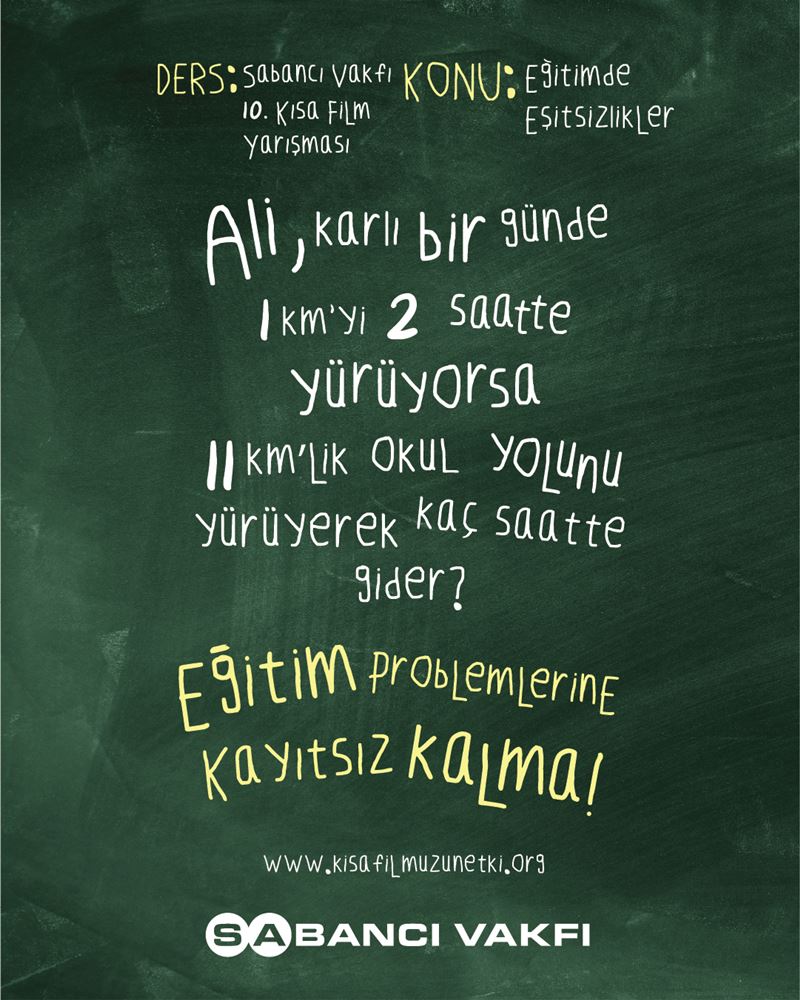 DERS: Sabancı Vakfı KONU: Eğitimde
10. Kısa Film Eşitsizlikler
Yarışması
Ali, karlı bir günde
1 km'yi 2 saatte
yürüyorsa
11 km'lik okul yolunu
yürüyerek kaç saatte
gider?
Eğitim problemlerine
kayıtsız kalma!
www.kisafilmuzunetki.org
SABANCI VAKFI